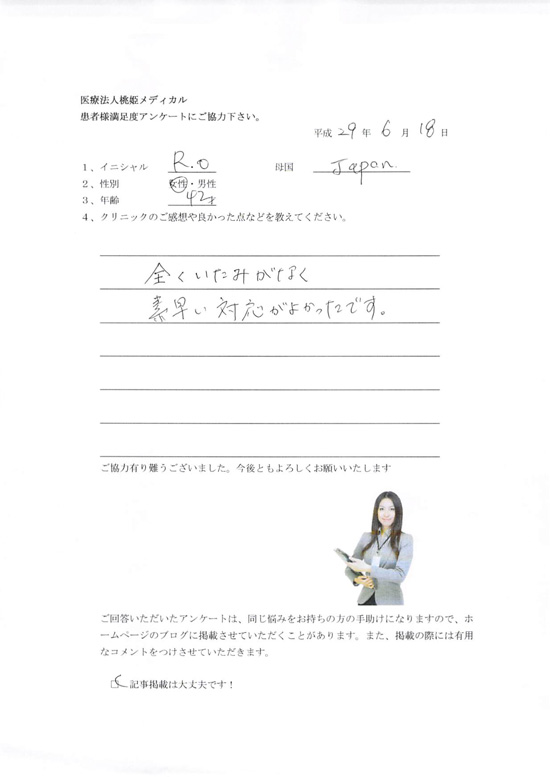 医療法人桃姫メディカル
患者様満足度アンケートにご協力下さい。
平成 29 年 6 月 18 日
1、イニシャル R.O 母国 Japan.
2、性別 女性・男性
3、年齢 42才
4、クリニックのご感想や良かった点などを教えてください。
全くいたみがなく
素早い対応がよかったです。
ご協力有り難うございました。今後ともよろしくお願いいたします
ご回答いただいたアンケートは、同じ悩みをお持ちの方の手助けになりますので、ホ
ームページのブログに掲載させていただくことがあります。また、掲載の際には有用
なコメントをつけさせていただきます。
記事掲載は大丈夫です！